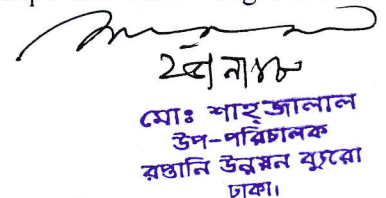 মোঃ শাহ্জালাল
উপ-পরিচালক
রপ্তানি উন্নয়ন ব্যুরো
ঢাকা।